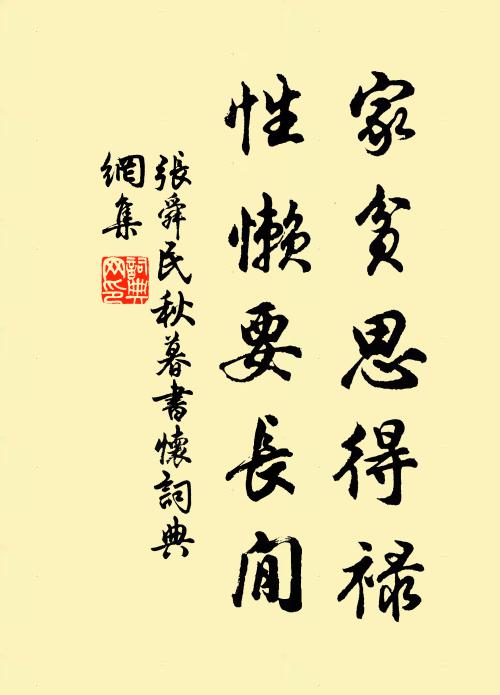 家貧思得禄
性懶要長閒
張舜民秋暮書懷詞典
網集
詞典
网印